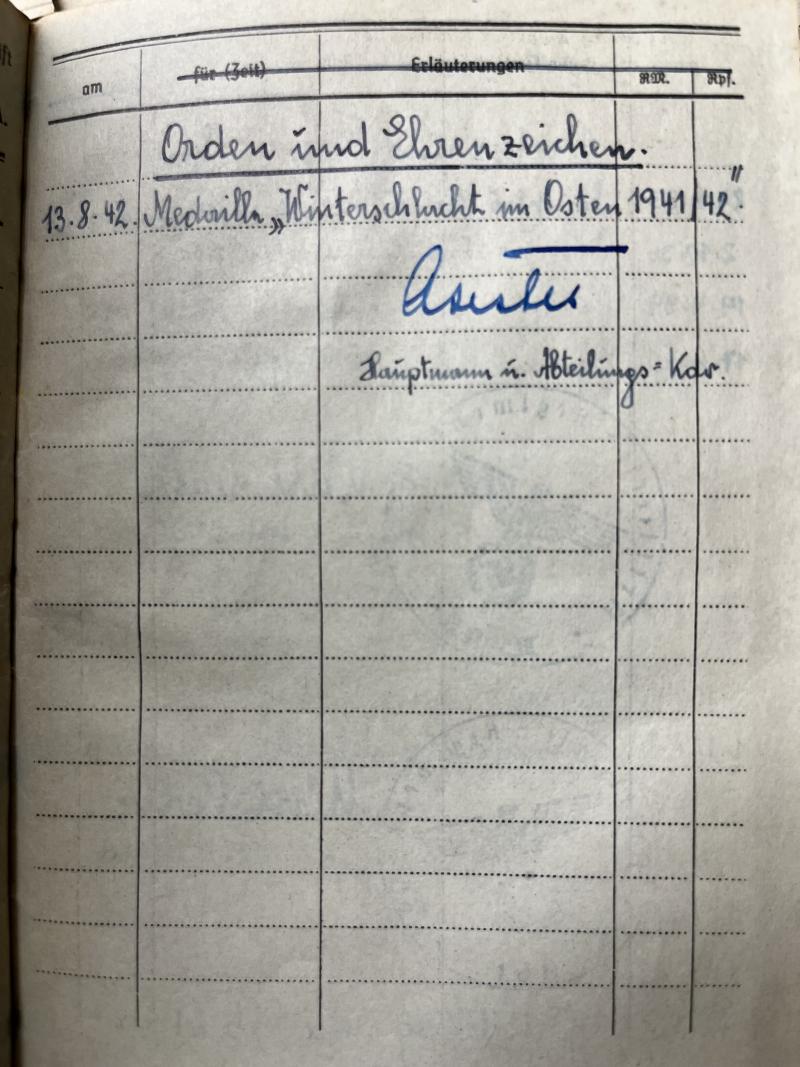 am für (Zeit) Erläuterungen RM. Rpf.
Orden und Ehrenzeichen.
13.8.42. Medaille „Winterschlacht im Osten 1941/42“.
Hauptmann u. Abteilungs=Kdr.